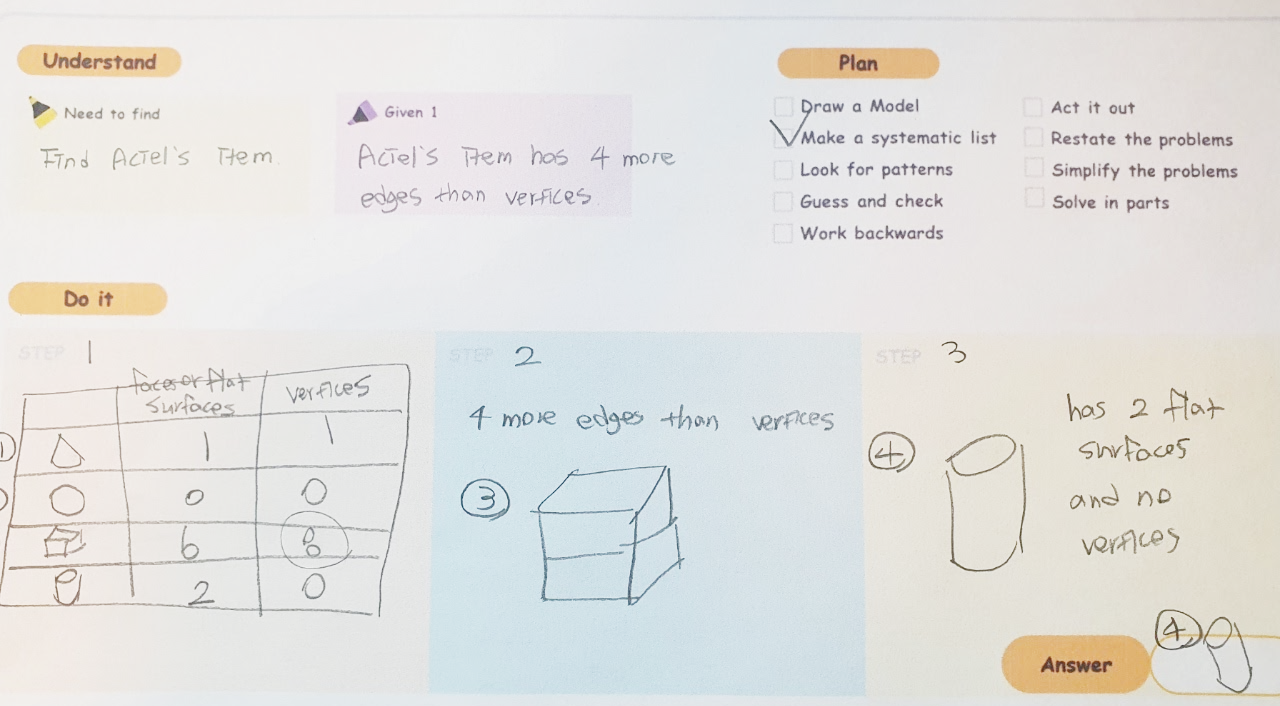 Understand
Need to find
Find Aciel's item.
Given 1
Aciel's item has 4 more
edges than verfices.
Plan
Draw a Model
Make a systematic list
Look for patterns
Guess and check
Work backwards
Act it out
Restate the problems
Simplify the problems
Solve in parts
Do it
STEP 1
faces or flat
surfaces
verfices
1 1
0 0
6 8
2 0
STEP 2
4 more edges than verfices
③
STEP 3
④
has 2 flat
surfaces
and no
verfices
Answer
④